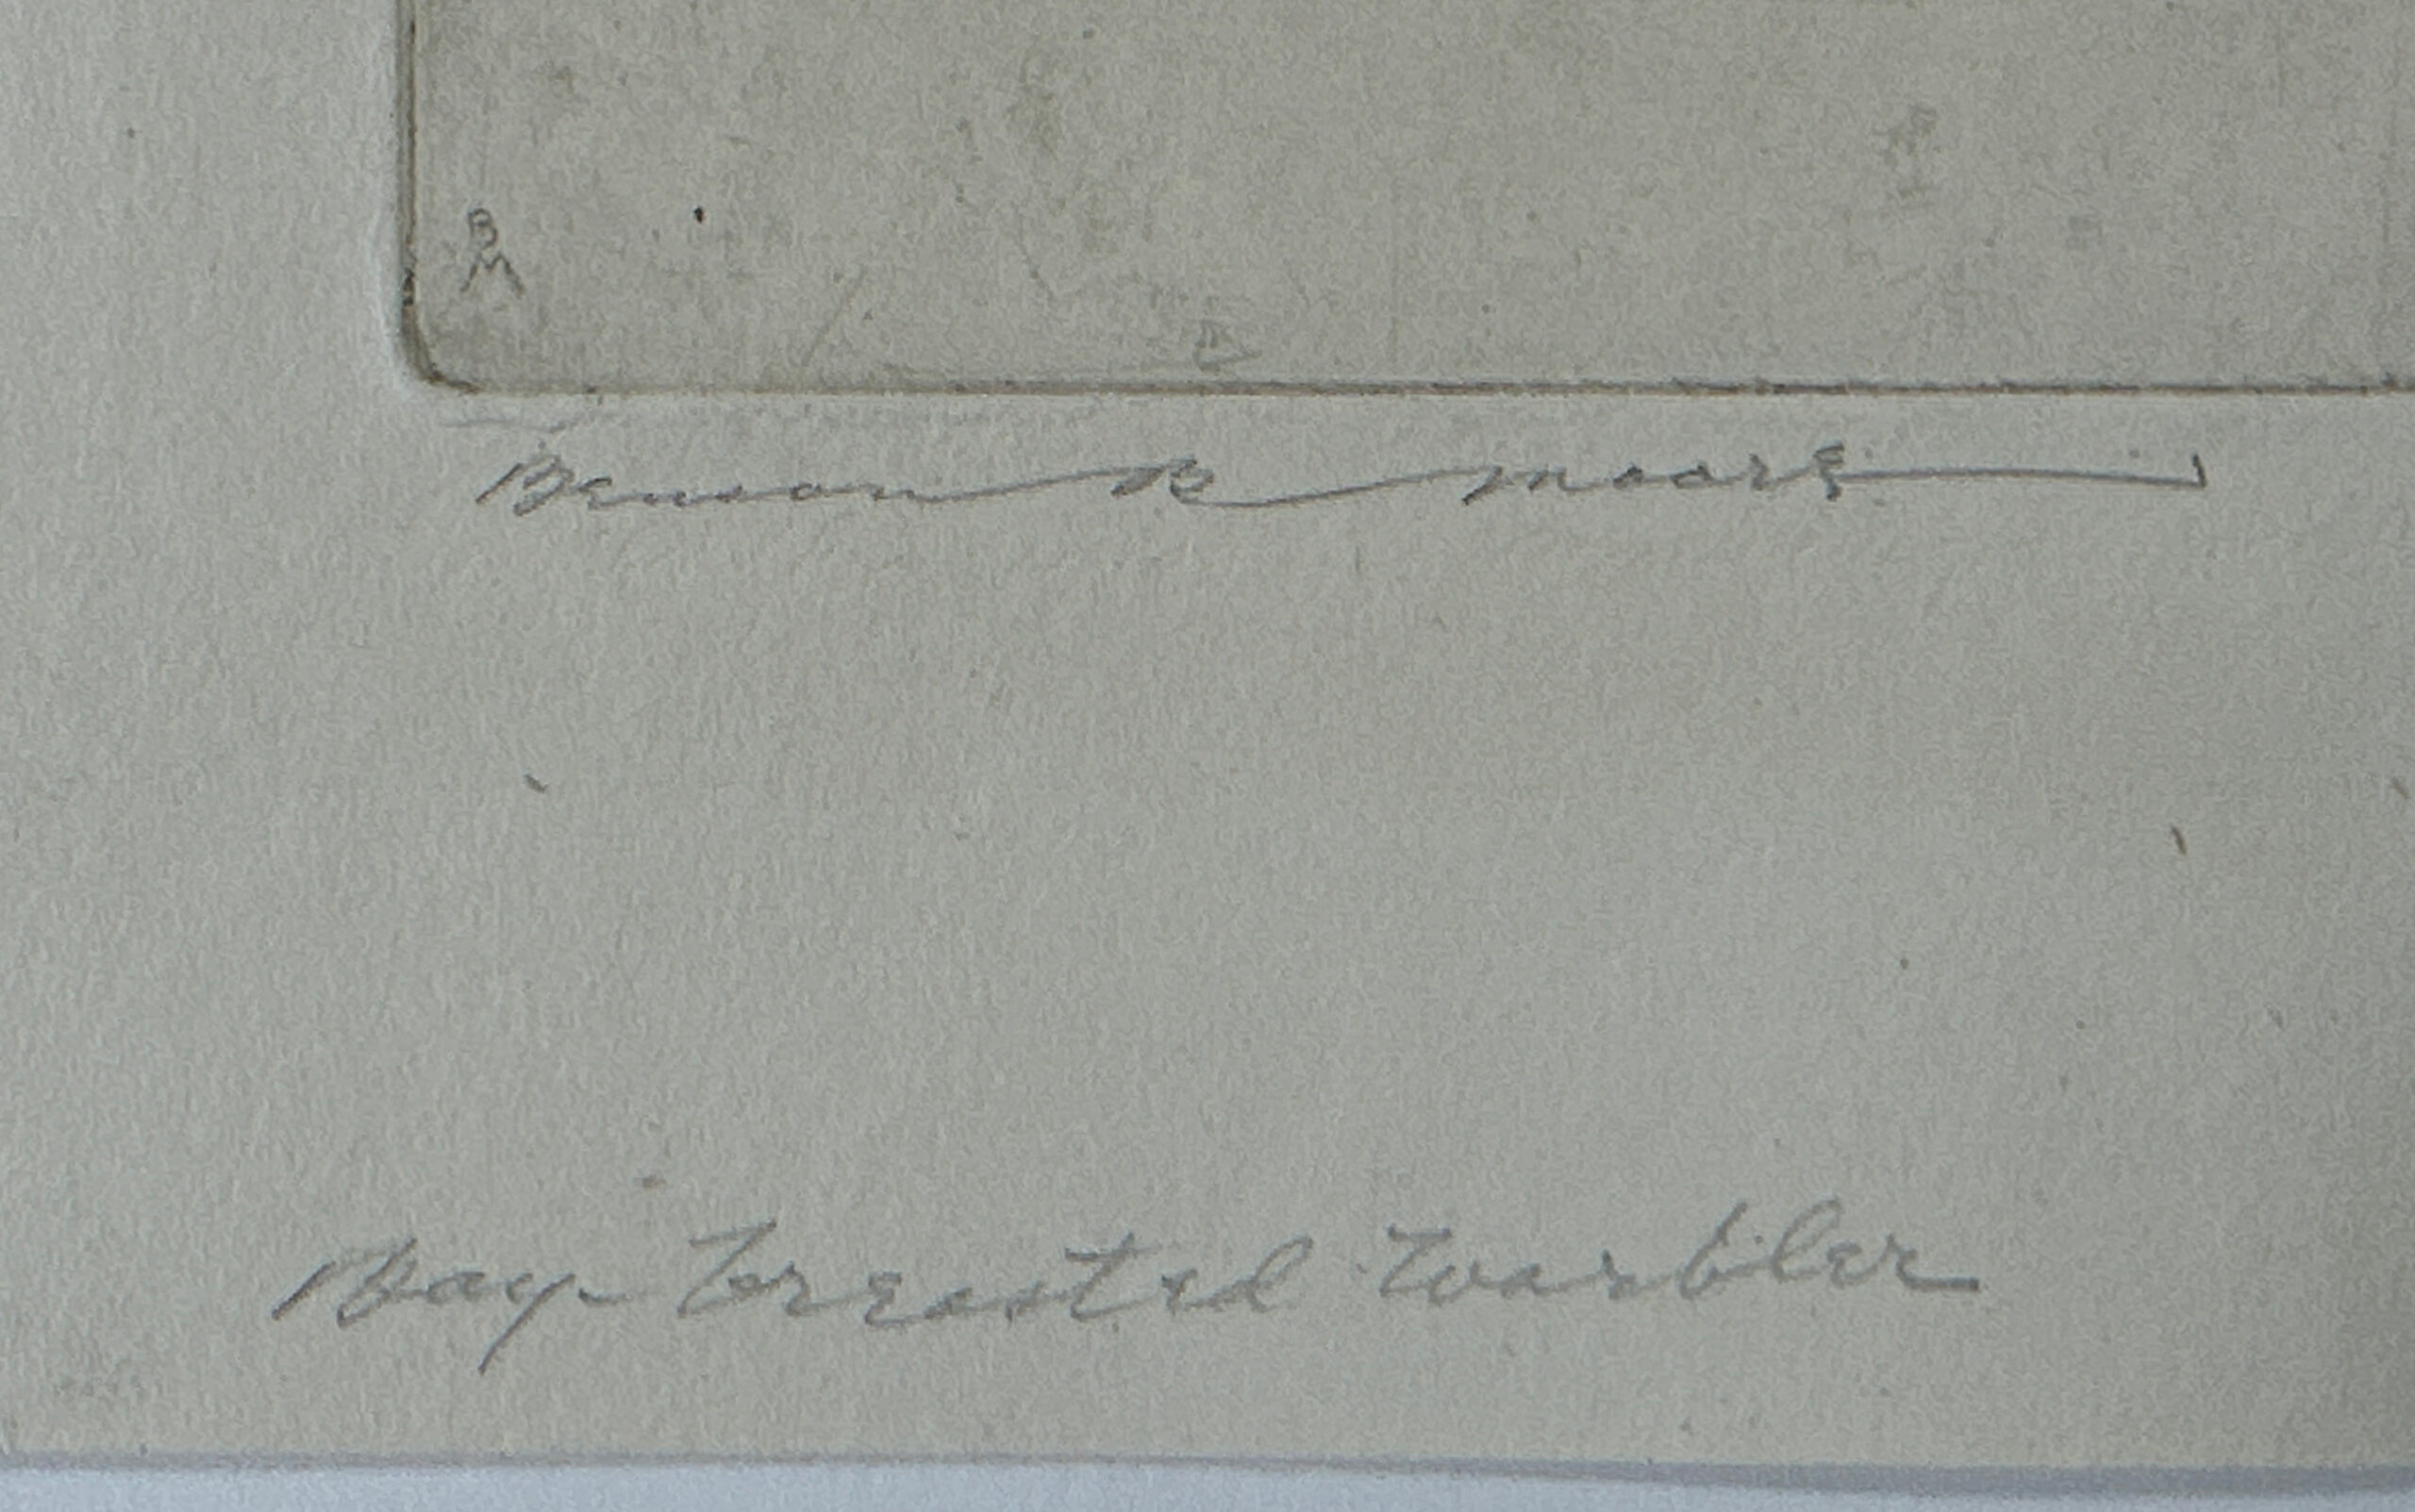 B
M
Benson B Moore
Bay-breasted Warbler